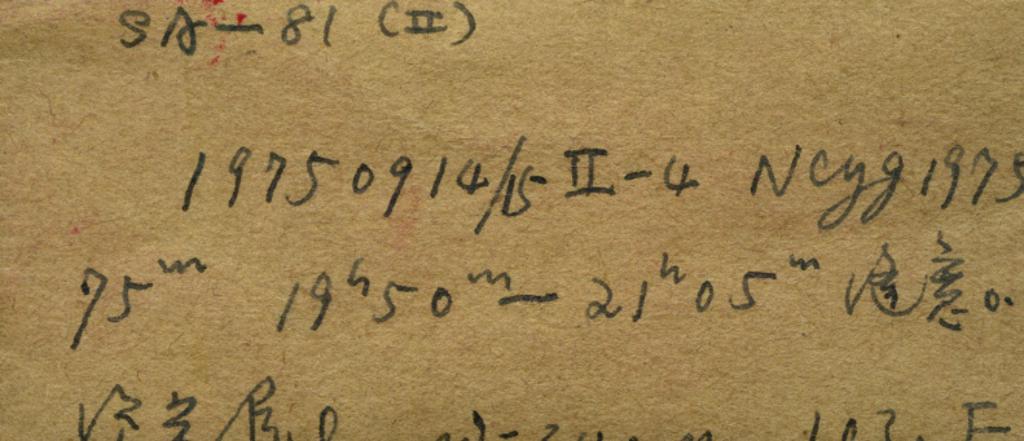 SA-81 (II)
19750914/15 II-4 NCyg1975
75ᵐ 19ʰ50ᵐ-21ʰ05ᵐ 注意。